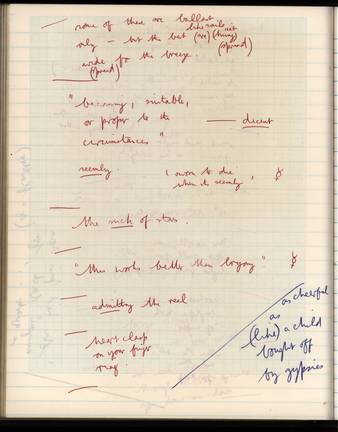 none of these are ballast
like sails set
only — but the best (are) (hung)
wide for the breeze (spread)
(spread)
"becoming, suitable,
or proper to the — decent
circumstances"
seemly (I want to die,
when it seemly
the nick of stars.
"this works better than
admitting the real
heart clasp
on your
as cheerful
as
(like) a child
bought off
by gypsies